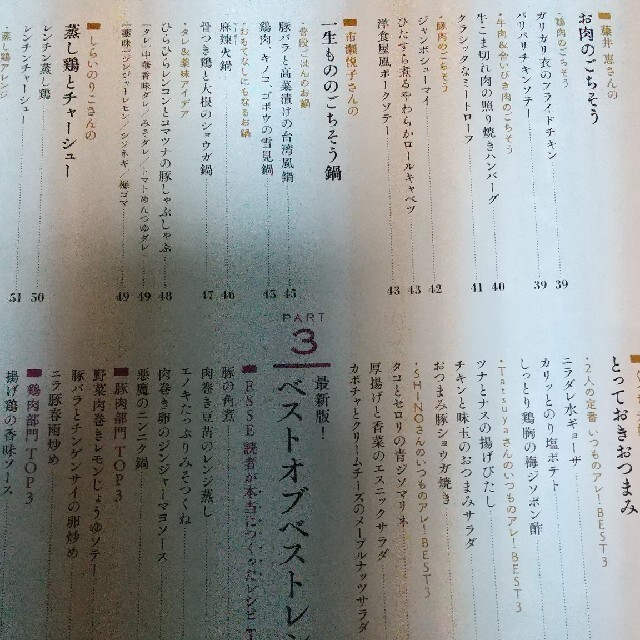 藤井 恵さんの
お肉のごちそう
・鶏肉のごちそう
ガリガリ衣のフライドチキン 39
パリパリチキンソテー 39
・牛肉&合いびき肉のごちそう
牛こま切れ肉の照り焼きハンバーグ 40
クラシックなミートローフ 41
・豚肉のごちそう
ジャンボシューマイ 42
ひたすら煮るやわらかロールキャベツ 43
洋食屋風ポークソテー 43
市瀬悦子さんの
一生もののごちそう鍋
・普段ごはんのお鍋
豚バラと高菜漬けの台湾風鍋 45
鶏肉、キノコ、ゴボウの雪見鍋 45
・おもてなしにもなるお鍋
麻辣火鍋 46
骨つき鶏と大根のショウガ鍋 47
・タレ&薬味アイデア
ひらひらレンコンとコマツナの豚しゃぶしゃぶ 48
・タレ/中華香味ダレ/みそダレ/トマトめんつゆダレ 49
・薬味/ジンジャーレモン/シソネギ/梅ゴマ 49
しらいのりこさんの
蒸し鶏とチャーシュー
レンチン蒸し鶏 50
レンチンチャーシュー 51
・蒸し鶏アレンジ
とっておきおつまみ
・2人の定番 いつものアレーBEST3
ニラダレ水ギョーザ
カリッとのり塩ポテト
しっとり鶏胸の梅ジソポン酢
・Tatsuyaさんのいつものアレ!BEST3
ツナとナスの揚げびたし
チキンと味玉のおつまみサラダ
おつまみ豚ショウガ焼き
・SHINOさんのいつものアレ!BEST3
タコとセロリの青ジソマリネ
厚揚げと香菜のエスニックサラダ
カボチャとクリームチーズのメープルナッツサラダ
PART
3
最新版!
ベストオブベストレシ
ESSE読者が本当につくったレシピT
豚の角煮
肉巻き豆苗のレンジ蒸し
エノキたっぷりみそつくね
肉巻き卵のジンジャーマヨソース
悪魔のニンニク鍋
豚肉部門TOP3
野菜肉巻きレモンじょうゆソテー
豚バラとチンゲンサイの卵炒め
ニラ豚春雨炒め
鶏肉部門TOP3
揚げ鶏の香味ソース